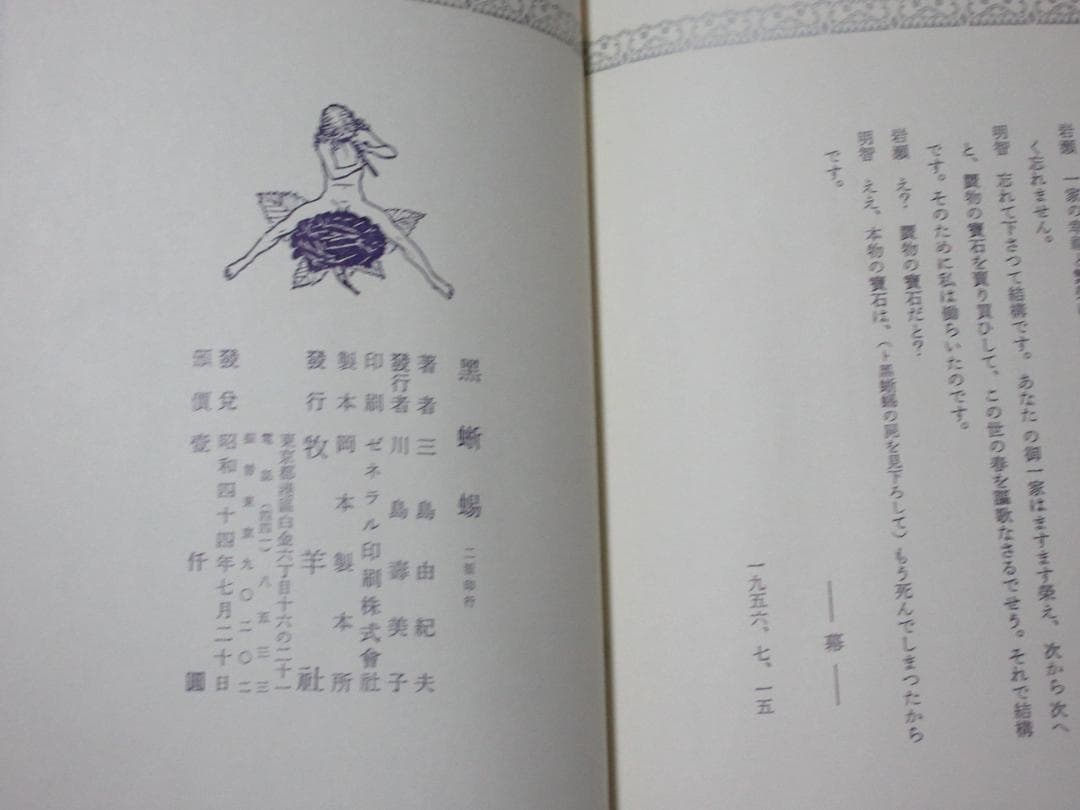 く忘れません。
明智　忘れて下さつて結構です。あなたの御一家はますます榮え、次から次へ
と、贋物の寶石を賣り買ひして、この世の春を謳歌なさるでせう。それで結構
です。そのために私は働らいたのです。
岩瀬　え？　贋物の寶石だと？
明智　ええ。本物の寶石は、（ト黑蜥蜴の死を見下ろして）もう死んでしまつたから
です。
――幕――
一九五六、七、一五
黑蜥蜴
著者　三島由紀夫
發行者　川島壽美子
印刷　ゼネラル印刷株式會社
製本　岡本製本所
發行　牧羊社
東京都港區白金六丁目十六の二十一
電話（四四一）八五三三
振替東京九〇二〇二
發兌　昭和四十四年七月二十日
頒價　壹仟圓